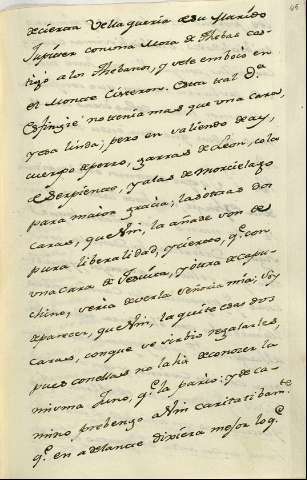 46
de cierta vellaqueria de su Marido
Jupiter con una Moza de Thebas cas-
tigò a los Thebanos, y se te emboscò en
el Monte Citeron. Esta tal D.ª
Esfinge no tenia mas que una cara,
y esa linda; pero en saliendo de ay,
cuerpo de perro, garras de Leon, cola
de Serpiente, y alas de Morcielago
para maior gracia; las otras dos
caras, que Vm. la añade son de
pura liberalidad, y cierto, q.e con
una cara de Jesuita, y otra de capu-
chino, seria de verla Señoria mia; soy
de parecer, que Vm. la quite esas dos
caras, con que se sirbiò regalarles,
pues con ellas no la ha de conocer la
misma Juno, q.e la pariò: y de ca-
mino prebengo a Vm caritatibam.te
q.e en adelante dixiera mejor lo q.e